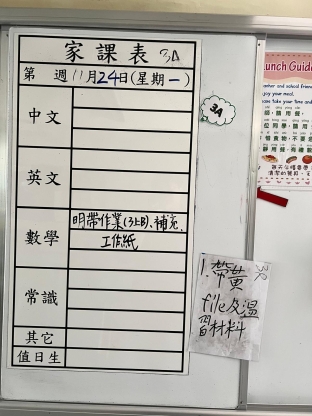 家課表 3A
第 週 11月24日(星期一)
3A
中文
英文
數學
明帶作業(3上B)、補充、
工作紙
常識
其它
值日生
1. 帶黃
file及溫
習材料
Lunch Guide
enjoy your meal.